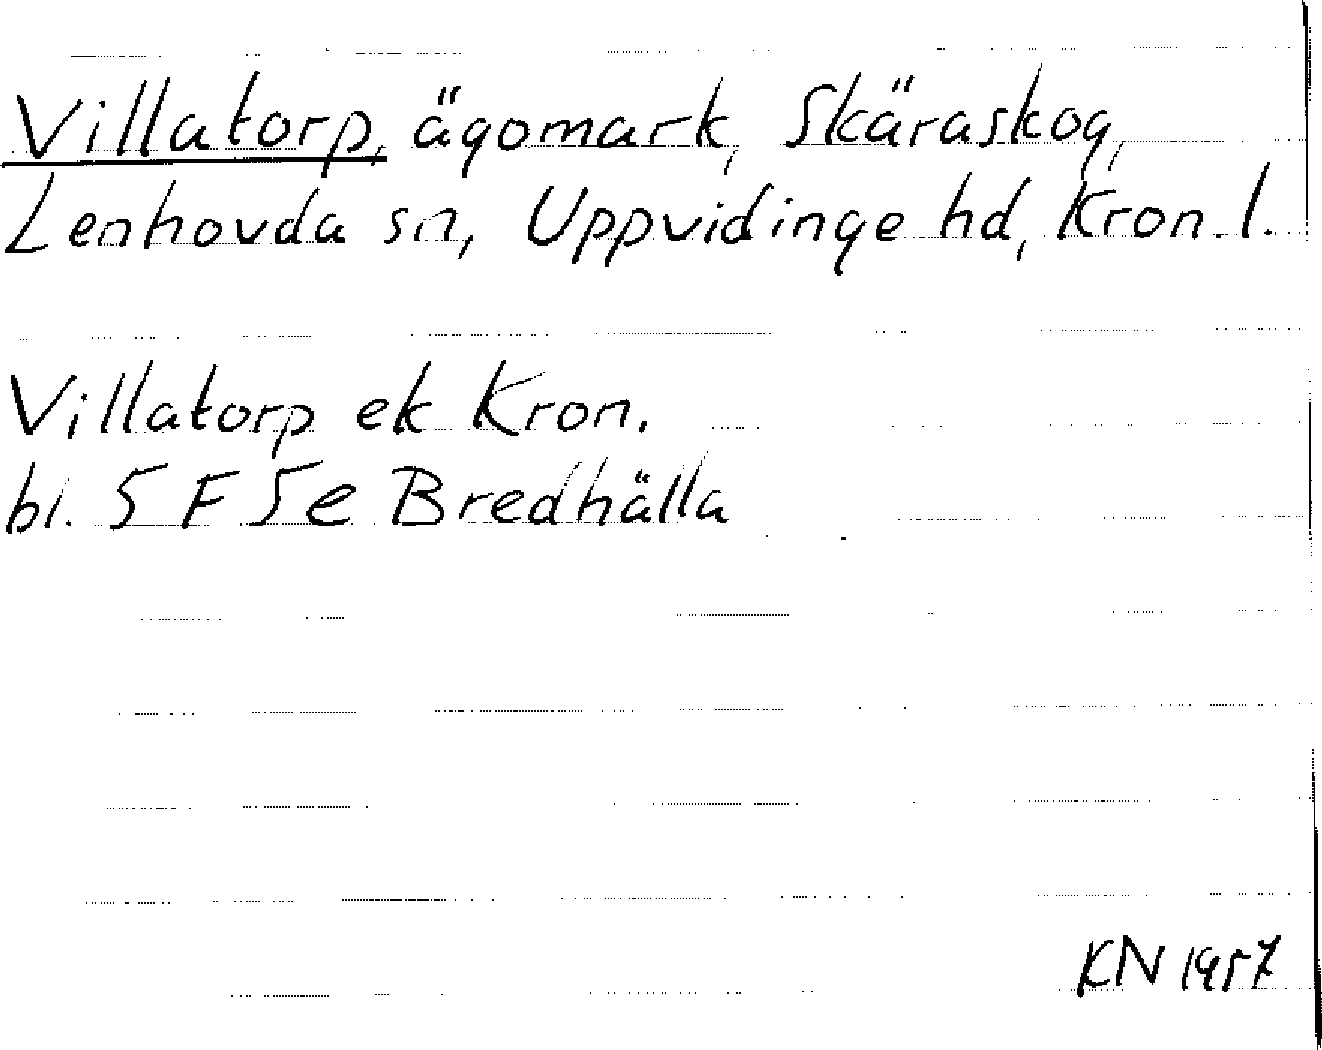 Villatorp, ägomark, Skäraskog,
Lenhovda sn, Uppvidinge hd, Kron. l.
Villatorp ek Kron.
bl. 5 F 5e Bredhälla
KN 1957